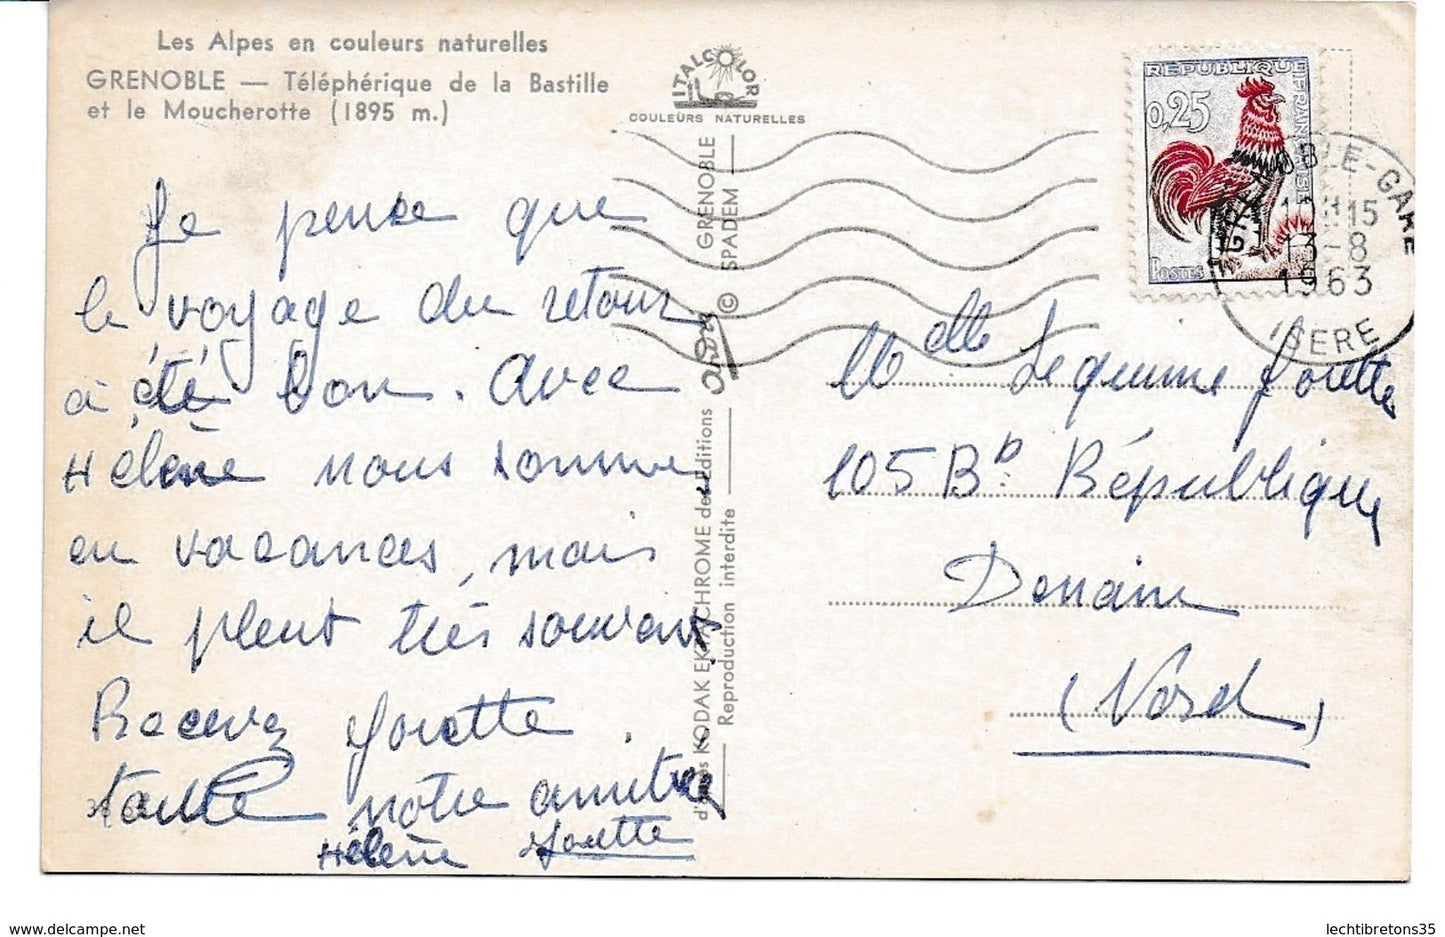 Les Alpes en couleurs naturelles
GRENOBLE — Téléphérique de la Bastille
et le Moucherotte (1895 m.)
ITALCOLOR
COULEURS NATURELLES
REPUBLIQUE FRANÇAISE
0,25
POSTES
GRENOBLE-GARE
13-8
1963
ISERE
Je pense que
le voyage du retour
a été bon. Avec
Hélène nous somme
en vacances, mais
il pleut très souvent
Recevez Josette
toute notre amitié
Hélène Josette
GRENOBLE
© SPADEM
d'après KODAK EKTACHROME des Editions
Reproduction interdite
Melle Legumme Josette
105 Bd. République
Denain
(Nord)
www.delcampe.net
lechtibretons35